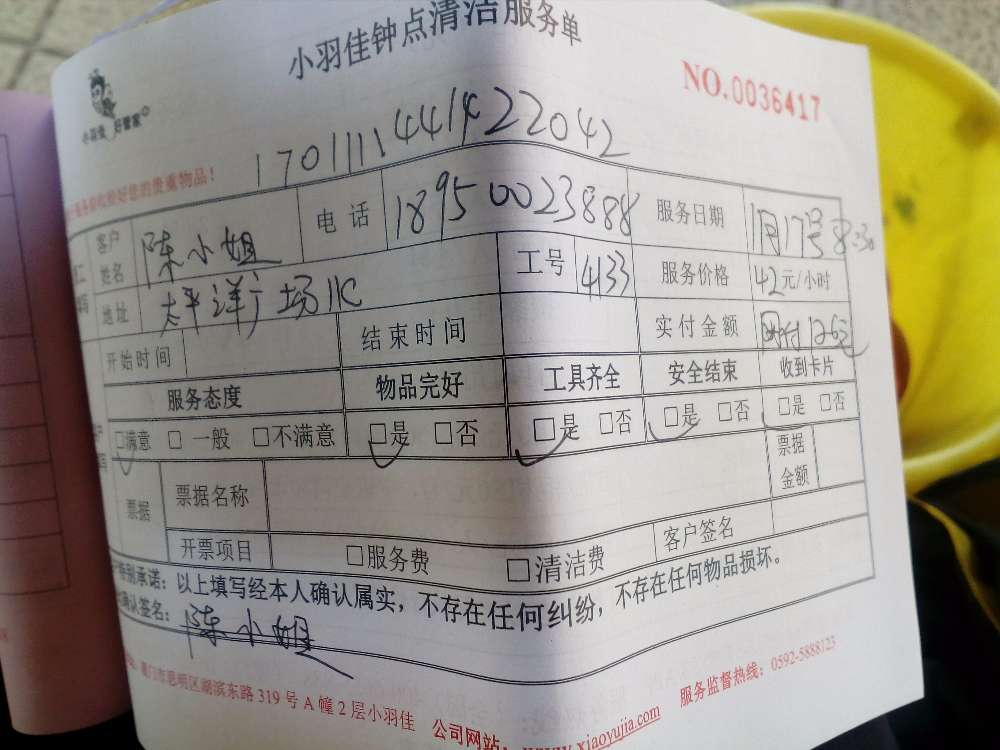 小羽佳钟点清洁服务单
小羽佳 好管家
NO.0036417
170111144142204​2
您的贵重物品!
客户姓名 陈小姐 电话 18950023888 服务日期 1月17号 8:30
地址 太平洋广场11C 工号 4133 服务价格 42元/小时
开始时间 结束时间 实付金额 网付126元
服务态度 物品完好 工具齐全 安全结束 收到卡片
□满意 □一般 □不满意 □是 □否 □是 □否 □是 □否 □是 □否
票据 票据名称 票据金额
开票项目 □服务费 □清洁费 客户签名
特别承诺:以上填写经本人确认属实,不存在任何纠纷,不存在任何物品损坏。
确认签名: 陈小姐
厦门市思明区湖滨东路319号A幢2层小羽佳 公司网站:www.xiaoyujia.com 服务监督热线:0592-5888123